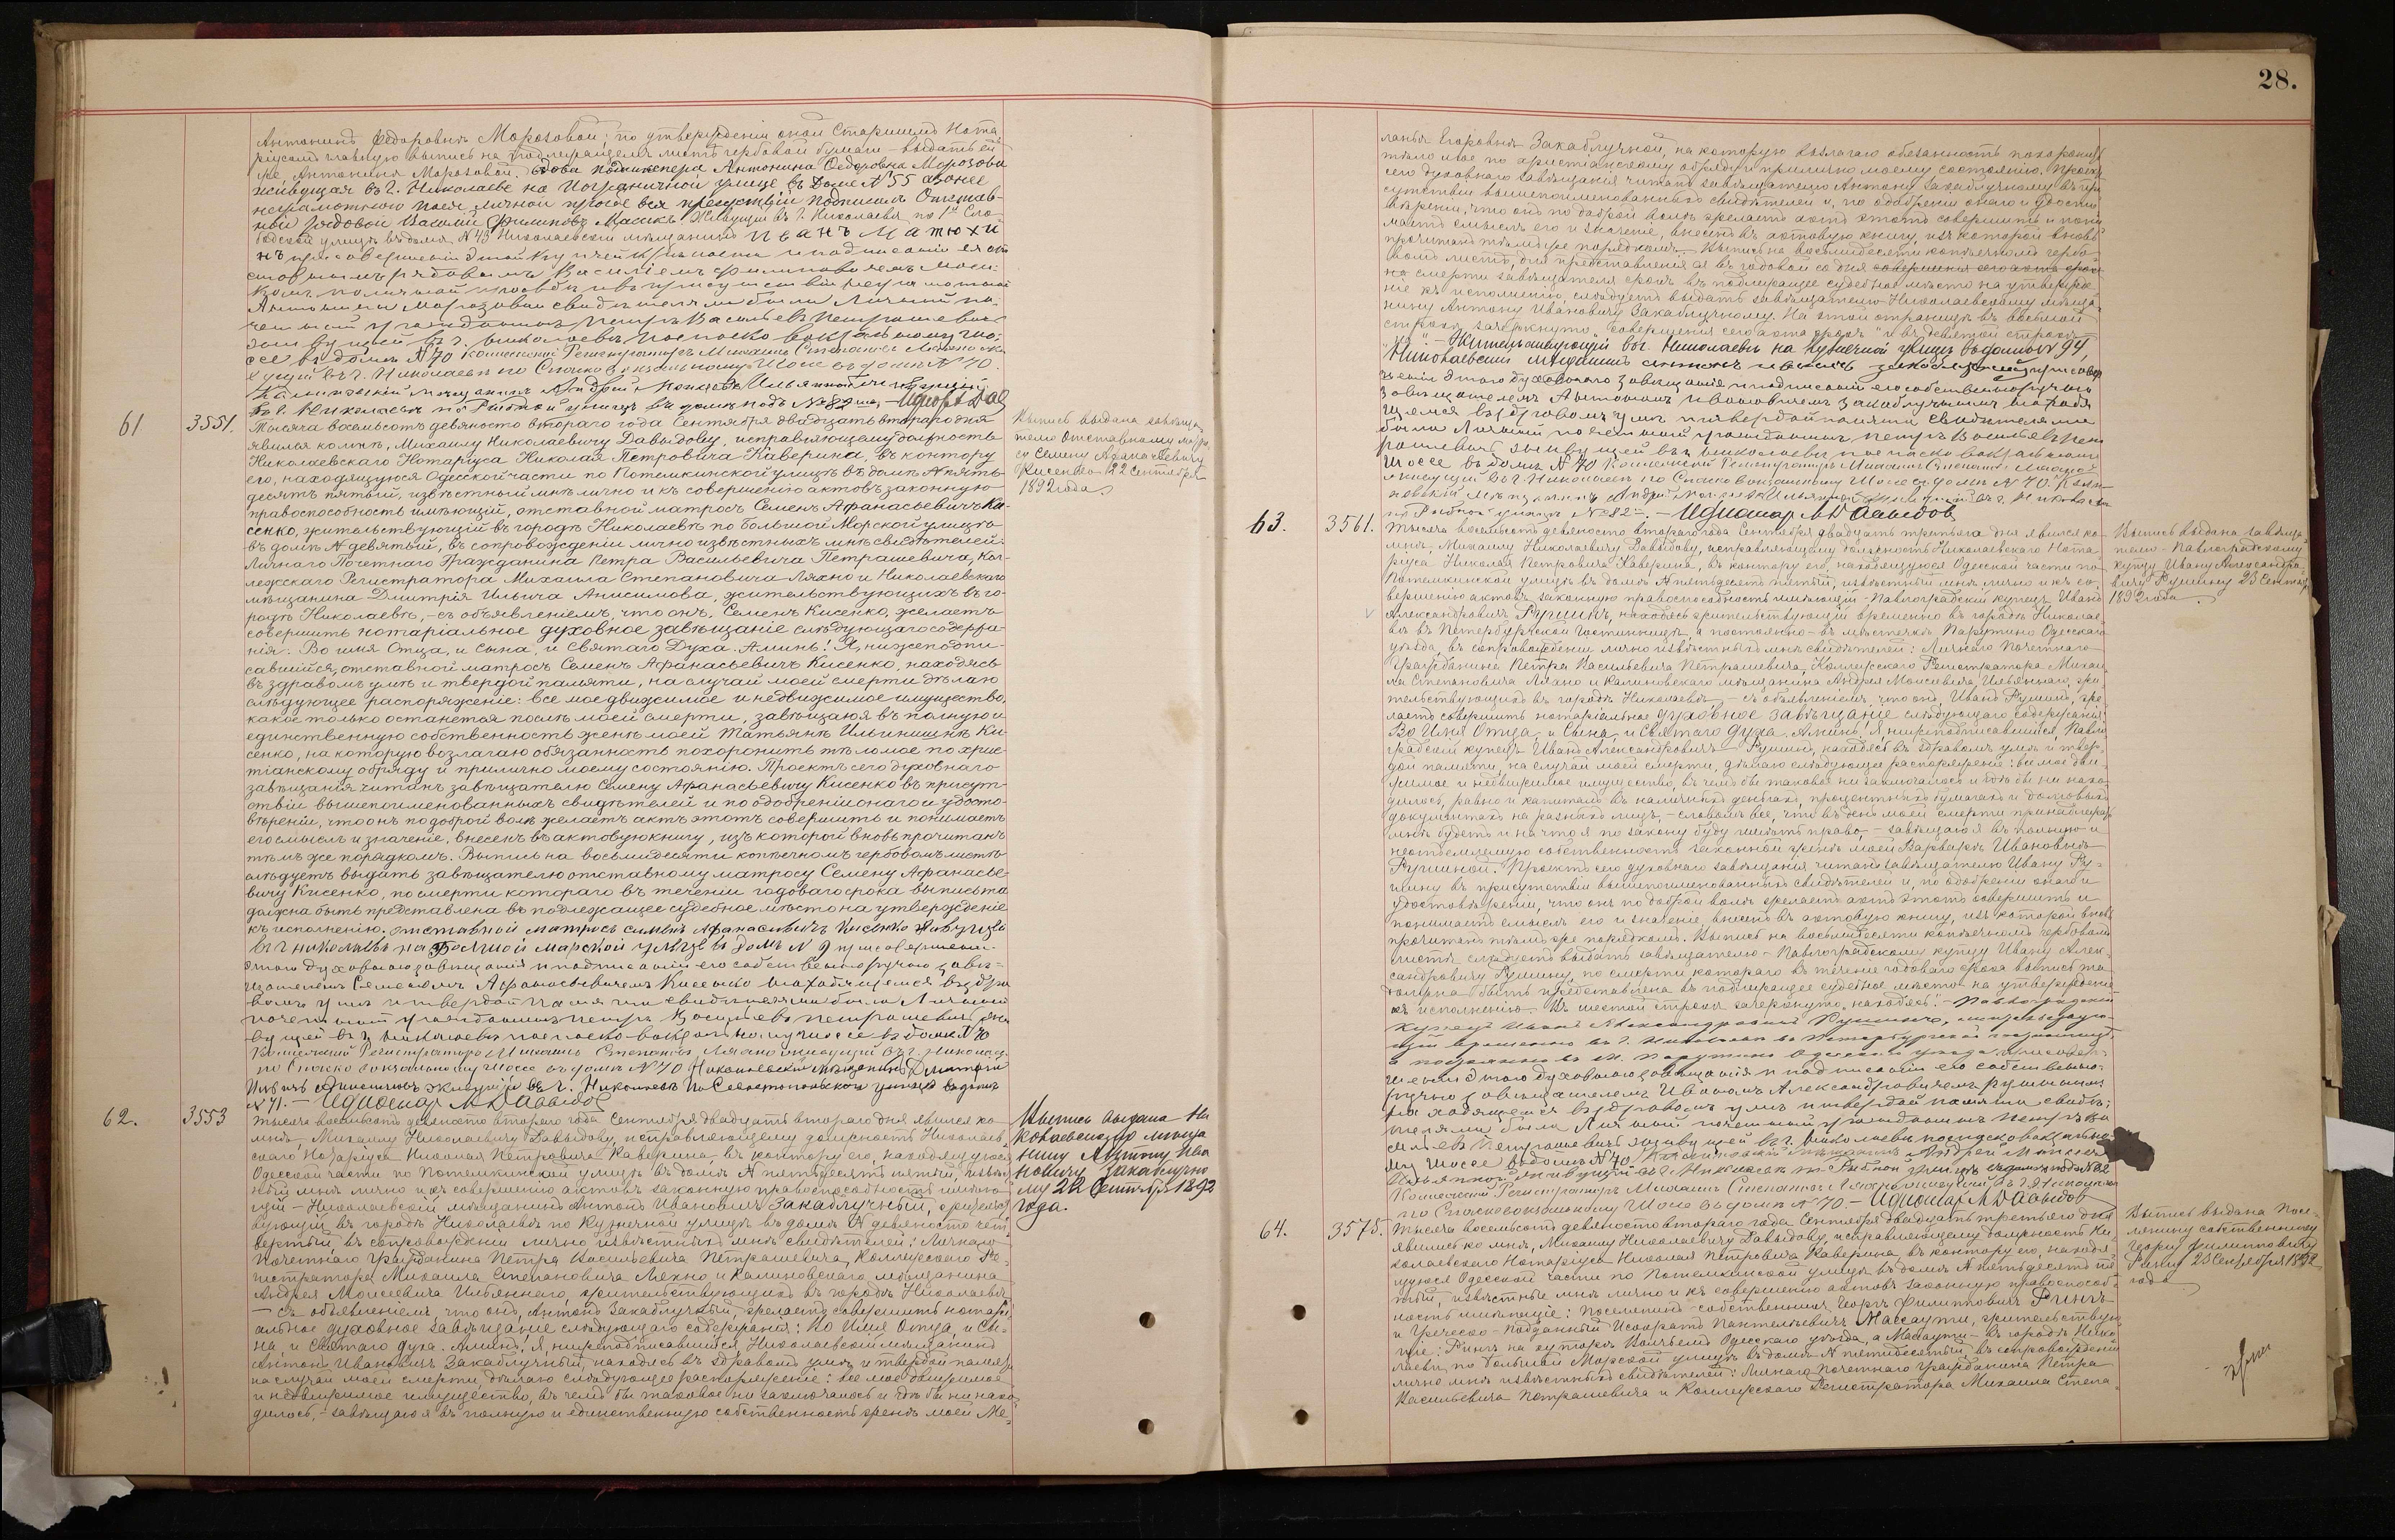 28.
Антонинѣ Федоровнѣ Морозовой; по утвержденіи оной Старшимъ Нота-
ріусомъ главную выпись на подлежащемъ листѣ гербовой бумаги – выдать ей
же, Антонинѣ Морозовой. вдова Антонина Федоровна Морозова
живущая въ г. Николаеве на Пограничной улице въ доме № 55 а зонее
неграмотною поея личной прозбе вся подписалъ Отстав-
ной рядовой Василій Филиповъ Живущій въ г. Николаевѣ по 1й Сло-
бодской улицѣ въ домѣ № 43 Николаевскій мѣщанинъ Иванъ Матюхи
нъ при совершеніи этой купчей крѣпости и подписаніи ея от
ставнымъ рядовымъ Василіемъ Филиповичемъ
по личной просьбѣ и въ присутствіи неграмотной
Антонины Морозовой свидѣтелями были Личный по-
четный гражданинъ Петръ Васильевъ Петрашевичъ
живущей въ г. Николаевѣ по Спаско вокзальному шо-
ссе въ домѣ № 70 Коллежскій Регистраторъ Михаилъ Степановъ Ляхно жи-
вущій въ г. Николаевѣ по Спаско вокзальному Шоссе въ домѣ № 70.
Калиновскій мѣщанинъ Андрей Моисеевъ Ильянной живущій
въ г. Николаевѣ по Рыбной улицѣ въ домѣ подъ № 82
61 3551. Тысяча восемьсотъ девяносто втораго года Сентября двадцать втораго дня
явился ко мнѣ, Михаилу Николаевичу Давыдову, исправляющему должность
Николаевскаго Нотаріуса Николая Петровича Каверина, въ контору
его, находящуюся Одесской части по Потемкинской улицѣ въ домѣ № пять-
десятъ пятый, извѣстный мнѣ лично и къ совершенію актовъ законную
правоспособность имѣющій, отставной матросъ Семенъ Афанасьевичъ Ки-
сенко, жительствующій въ городѣ Николаевѣ по большой Морской улицѣ
въ домѣ № девятый, въ сопровожденіи лично извѣстныхъ мнѣ свидѣтелей:
Личнаго Почетнаго Гражданина Петра Васильевича Петрашевича, Кол-
лежскаго Регистратора Михаила Степановича Ляхно и Николаевскаго
мѣщанина Дмитрія Ильича Анисимова, жительствующихъ въ го-
родѣ Николаевѣ, – съ объявленіемъ, что онъ, Семенъ Кисенко, желаетъ
совершить нотаріальное духовное завѣщаніе слѣдующаго содержа-
нія: Во имя Отца, и Сына, и Святаго Духа. Аминь! Я, нижеподпи-
савшійся, отставной матросъ Семенъ Афанасьевичъ Кисенко, находясь
въ здравомъ умѣ и твердой памяти, на случай моей смерти дѣлаю
слѣдующее распоряженіе: все мое движимое и недвижимое имущество,
какое только останется послѣ моей смерти, завѣщаю я въ полную и
единственную собственность женѣ моей Татьянѣ Ильинишнѣ Ки-
сенко, на которую возлагаю обязанность похоронить тѣло мое по хрис-
тіанскому обряду и прилично моему состоянію. Проектъ сего духовнаго
завѣщанія читанъ завѣщателю Семену Афанасьевичу Кисенко въ присут-
ствіи вышепоименованныхъ свидѣтелей и по одобреніи онаго и удосто-
вѣреніи, что онъ по доброй волѣ желаетъ актъ этотъ совершить и понимаетъ
его смыслъ и значеніе, внесенъ въ актовую книгу, изъ которой вновь прочитанъ
тѣмъ же порядкомъ. Выпись на восьмидесяти копѣечномъ гербовомъ листѣ
слѣдуетъ выдать завѣщателю отставному матросу Семену Афанасье-
вичу Кисенко, по смерти котораго въ теченіи годоваго срока выпись та
должна быть представлена въ подлежащее судебное мѣсто на утвержденіе
къ исполненію. отставной матросъ семенъ Афанасивичъ Кисенко живущій
въ г николаевѣ на большой марской улеце въ доме № 9 при совершеніи
этаго духовного завѣщанія и подписаніи его собственноручно завѣ-
щателемъ Семеномъ Афанасьевичемъ Кисенко находящемся въ здра
вомъ умѣ и твердой памяти свидѣтелями были Личный
почетный гражданинъ Петръ Васильевъ Петрашевичъ жи
вущей въ г Николаевѣ по спаско-вокзальному шоссе въ домѣ № 70
Коллежскій Регистраторъ Михаилъ Степановъ Ляхно живущій въ г. Николаевѣ
по Спаско вокзальному Шоссе въ домѣ № 70 Николаевскій мѣщанинъ Дмитрій
Ильичъ Анисимовъ живущій въ г. Николаевѣ по Севастопольской улице въ домѣ
№ 71. – М Давыдов
Выпись выдана завѣща-
телю отставному матро-
су Семену Афанасьевичу
Кисенко 22 сентября
1892 года.
62. 3553 Тысяча восемьсотъ девяносто втораго года Сентября двадцать втораго дня явился ко
мнѣ, Михаилу Николаевичу Давыдову, исправляющему должность Николаев-
скаго Нотаріуса Николая Петровича Каверина, въ контору его, находящуюся
Одесской части по Потемкинской улицѣ въ домѣ № пятьдесятъ пятый, извѣст-
ный мнѣ лично и къ совершенію актовъ законную правоспособность имѣю-
щій – Николаевскій мѣщанинъ Антонъ Ивановичъ Закаблучный, жительст-
вующій въ городѣ Николаевѣ по Кузнечной улицѣ въ домѣ № девяносто чет-
вертый въ сопровожденіи лично извѣстныхъ мнѣ свидѣтелей: Личнаго
Почетнаго Гражданина Петра Васильевича Петрашевича, Коллежскаго Ре-
гистратора Михаила Степановича Ляхно и Калиновскаго мѣщанина
Андрея Моисеевича Ильяннаго, жительствующихъ въ городѣ Николаевѣ,
– съ объявленіемъ, что онъ, Антонъ Закаблучный, желаетъ совершить нотарі-
альное духовное завѣщаніе слѣдующаго содержанія: Во Имя Отца, и Сы-
на, и Святаго Духа. Аминь. Я, нижеподписавшійся Николаевскій мѣщанинъ
Антонъ Ивановичъ Закаблучный, находясь въ здравомъ умѣ и твердой памяти,
на случай моей смерти, дѣлаю слѣдующее распоряженіе: все мое движимое
и недвижимое имущество, въ чемъ бы таковое ни заключалось и гдѣ бы ни нахо-
дилось, – завѣщаю я въ полную и единственную собственность женѣ моей Ме-
Выпись выдана Ни
колаевскому мѣща
нину Антону Ива
новичу Закаблучно
му 22 Сентября 1892
года.
ланьѣ Егоровнѣ Закаблучной, на которую возлагаю обязанность похоронить
тѣло мое по христіанскому обряду и прилично моему состоянію. Проэктъ
сего духовнаго завѣщанія читанъ завѣщателю Антону Закаблучному въ при
сутствіи вышепоименованныхъ свидѣтелей и, по одобреніи онаго и удосто
вѣреніи, что онъ по доброй волѣ желаетъ актъ этотъ совершить и пони
маетъ смыслъ его и значеніе, внесенъ въ актовую книгу, изъ которой вновь
прочитанъ тѣмъ же порядкомъ. Выпись на восьмидесяти копѣечномъ гербо-
вомъ листѣ, для представленія ея въ годовой со дня совершенія сего акта срокъ
на смерти завѣщателя срокъ въ подлежащее судебное мѣсто на утвержде-
ніе къ исполненію, слѣдуетъ выдать завѣщателю – Николаевскому мѣща-
нину Антону Ивановичу Закаблучному. На этой страницѣ въ восьмой
строкѣ зачеркнуто „совершенія сего акта срокъ“ и въ девятой строкѣ
„на“. – Жительствующій въ г. Николаевѣ на Кузнечной улицѣ въ домѣ № 94,
Николаевскій мѣщанинъ Антонъ Ивановъ Закаблучный при совер
шеніи этаго духовнаго завѣщанія и подписаніи его собственноручно
завѣщателемъ Антономъ Ивановичемъ Закаблучнымъ находя
щемся въ здравомъ умѣ и твердой памяти свидѣтелями
были Личный почетный гражданинъ Петръ Васильевъ Пет
рашевичъ живущей въ г. Николаевѣ по спаско вокзальному
шоссе въ домѣ № 70 Коллежскій Регистраторъ Михаилъ Степановъ Ляхно
живущій въ г. Николаевѣ по Спаско вокзальному Шоссе въ домѣ № 70. Кали-
новскій мѣщанинъ Андрей Моисеевъ Ильянной живущій въ г. Николаевѣ
по Рыбной улицѣ № 82 – М Давыдов
63. 3561. Тысяча восемьсотъ девяносто втораго года Сентября двадцать третьяго дня явился ко
мнѣ, Михаилу Николаевичу Давыдову, исправляющему должность Николаевскаго Нота-
ріуса Николая Петровича Каверина, въ контору его, находящуюся Одесской части по
Потемкинской улицѣ въ домѣ № пятьдесятъ пятый, извѣстный мнѣ лично и къ со-
вершенію актовъ законную правоспособность имѣющій – Павлоградскій купецъ Иванъ
Александровичъ Рушинъ, находясь жительствующій временно въ городѣ Николае-
вѣ въ Петербургской гостинницѣ, а постоянно – въ мѣстечкѣ Парутино Одесскаго
уѣзда, въ сопровожденіи лично извѣстныхъ мнѣ свидѣтелей: Личнаго Почетнаго
Гражданина Петра Васильевича Петрашевича, Коллежскаго Регистратора Михаи-
ла Степановича Ляхно и Калиновскаго мѣщанина Андрея Моисеевича Ильяннаго, жи-
тельствующихъ въ городѣ Николаевѣ, – съ объявленіемъ, что онъ, Иванъ Рушинъ, же-
лаетъ совершить нотаріальное духовное завѣщаніе слѣдующаго содержанія:
Во Имя Отца, и Сына, и Святаго Духа. Аминь. Я, нижеподписавшійся, Павло-
градскій купецъ Иванъ Александровичъ Рушинъ, находясь въ здравомъ умѣ и твер-
дой памяти, на случай моей смерти, дѣлаю слѣдующее распоряженіе: все мое дви-
жимое и недвижимое имущество, въ чемъ бы таковое ни заключалось и гдѣ бы ни нахо-
дилось, равно и капиталъ въ наличныхъ деньгахъ, процентныхъ бумагахъ и долговыхъ
документахъ на разныхъ лицъ, – словомъ все, что въ день моей смерти принадлежать
мнѣ будетъ и на что я по закону буду имѣть право, – завѣщаю я въ полную и
неотъемлемую собственность законной женѣ моей Варварѣ Ивановнѣ
Рушиной. Проэктъ сего духовнаго завѣщанія читанъ завѣщателю Ивану Ру-
шину въ присутствіи вышепоименованныхъ свидѣтелей и, по одобреніи онаго и
удостовѣреніи, что онъ по доброй волѣ желаетъ актъ этотъ совершить и
понимаетъ смыслъ его и значеніе, внесенъ въ актовую книгу, изъ которой вновь
прочитанъ тѣмъ же порядкомъ. Выпись на восьмидесяти копѣечномъ гербовомъ
листѣ слѣдуетъ выдать завѣщателю – Павлоградскому купцу Ивану Алек-
сандровичу Рушину, по смерти котораго въ теченіе годоваго срока выпись та
должна быть представлена въ подлежащее судебное мѣсто на утвержденіе
къ исполненію. Въ шестой строкѣ зачеркнуто „находясь“. – Павлоградскій
Купецъ Иванъ Александровичъ Рушинъ, жительствую-
щій временно въ г. Николаевѣ въ Петербургской гостинницѣ
а постоянно въ м. Парутино Одесскаго уѣзда. При совер-
шеніи этаго духовнаго завѣщанія и подписаніи его собственно-
ручно завѣщателемъ Иваномъ Александровичемъ Рушинымъ
находящемся въ здравомъ умѣ и твердой памяти свидѣ-
телями были Личный почетный гражданинъ Петръ Ва
сильевъ Петрашевичъ живущей въ г. Николаевѣ по спаско вокзально
му шоссе въ домѣ № 70 Калиновскій мѣщанинъ Андрей Моисеевъ
Ильянной живущій въ г. Николаевѣ по Рыбной улицѣ въ домѣ подъ № 82
Коллежскій Регистраторъ Михаилъ Степановъ Ляхно живущій въ г. Николаевѣ
по Спасковокзальному Шоссе въ домѣ № 70 – М Давыдов
Выпись выдана завѣща-
телю – Павлоградскому
купцу Ивану Александро-
вичу Рушину 23 Сентября
1892 года
64. 3575. Тысяча восемьсотъ девяносто втораго года Сентября двадцать третьяго дня
явились ко мнѣ, Михаилу Николаевичу Давыдову, исправляющему должность Ни-
колаевскаго Нотаріуса Николая Петровича Каверина, въ контору его, находя-
щуюся Одесской части по Потемкинской улицѣ въ домѣ № пятьдесятъ пя-
тый, извѣстные мнѣ лично и къ совершенію актовъ законную правоспособ-
ность имѣющіе: Поселянинъ-собственникъ Георгъ Филипповичъ Ринъ
и Греческо-подданный Исократъ Пантельевичъ Массаути, жительствую-
щіе: Ринъ на хуторѣ Одесскаго уѣзда, а Массаути – въ городѣ Нико-
лаевѣ по большой Морской улицѣ въ домѣ № пятидесятый, въ сопровожденіи
лично мнѣ извѣстныхъ свидѣтелей: Личнаго Почетнаго Гражданина Петра
Васильевича Петрашевича и Коллежскаго Регистратора Михаила Степа-
Выпись выдана Посе-
лянину собственнику
Георгу Филипповичу
Рину 25 Сентября 1892
года